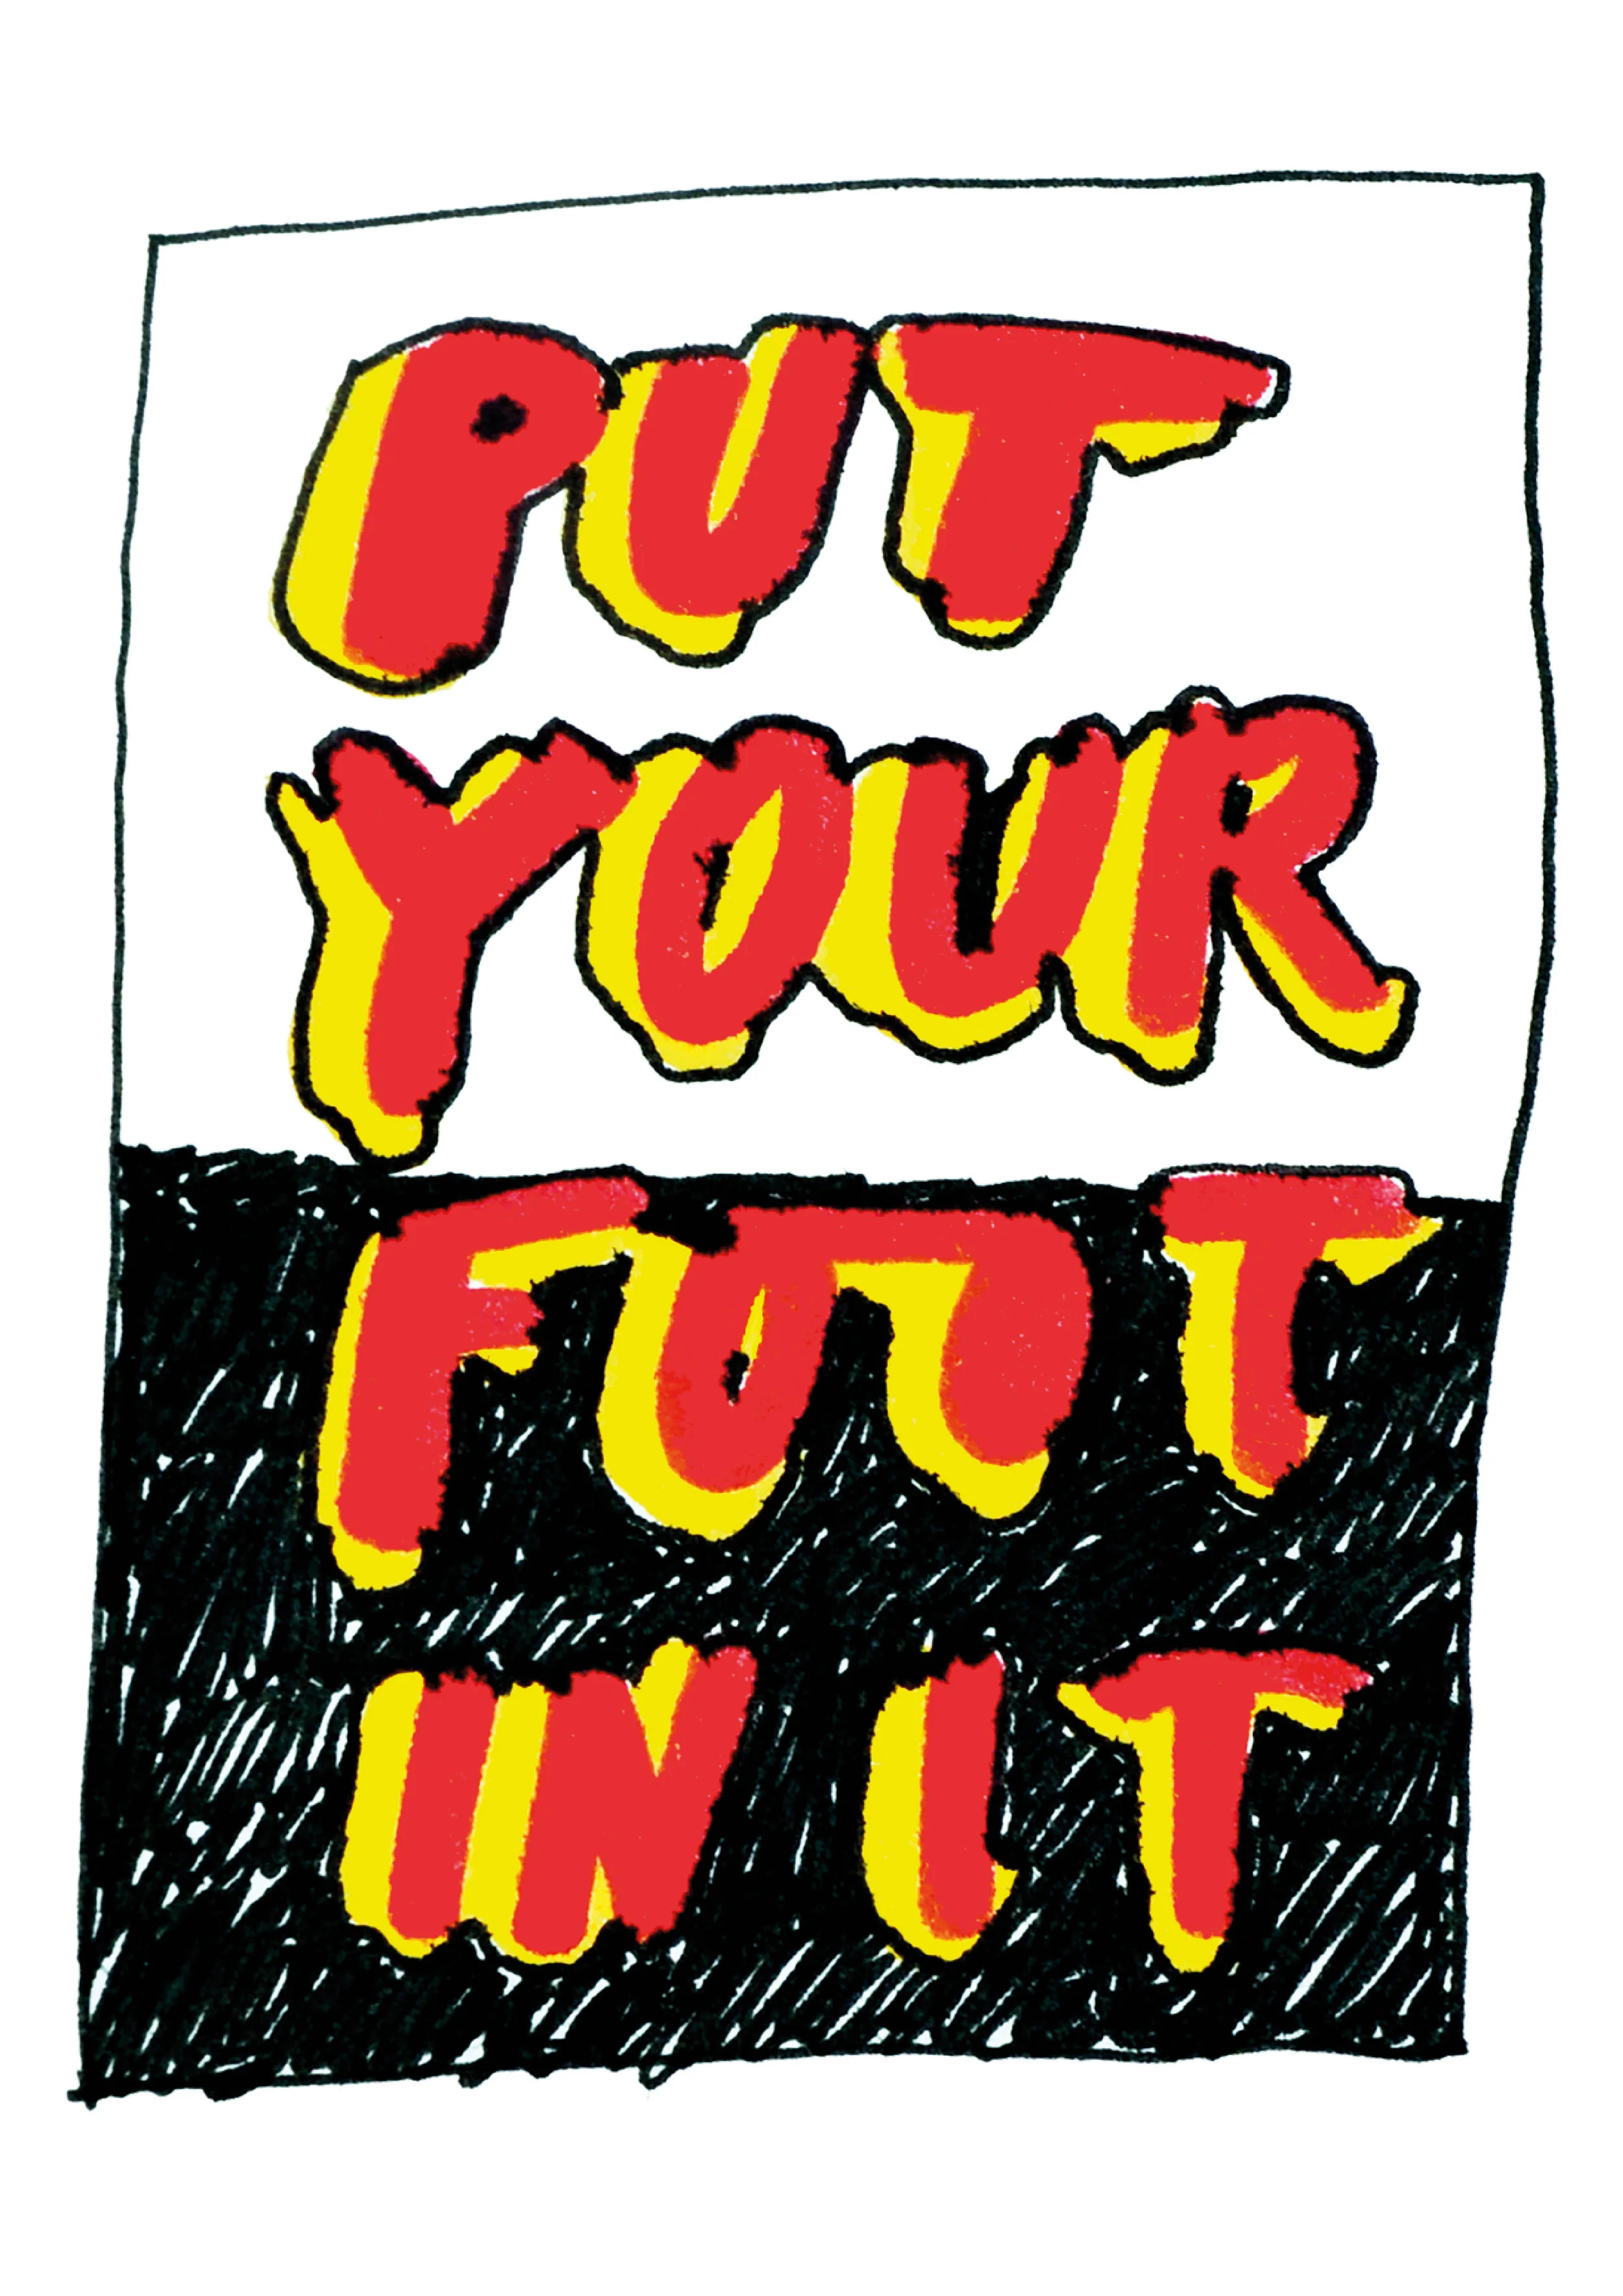 PUT
YOUR
FOOT
IN IT